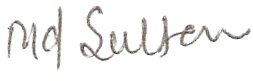 Md Sultan